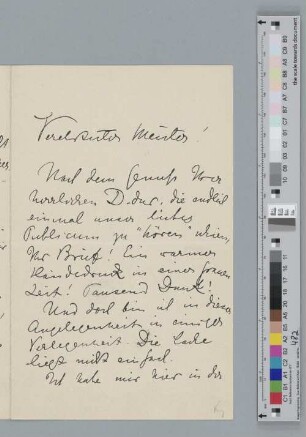 Verehrter Meister!
Nach dem Genuß Ihrer
herrlichen D-dur, die endlich
einmal unser liebes
Publicum zu "hören" schien,
Ihr Brief! Ein warmer
Händedruck in einer grauen
Zeit! Tausend Dank!
Und doch bin ich in dieser
Angelegenheit in einiger
Verlegenheit. Die Sache
liegt nicht einfach.
Ich habe mir hier in der
472
the scale towards document